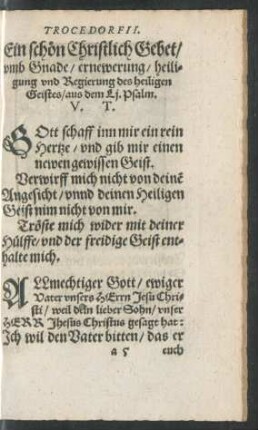 TROCEDORFII.
Ein schön Christlich Gebet/
vmb Gnade/ ernewerung/ heili-
gung vnd Regierung des heiligen
Geistes/ aus dem Lj. Psalm.
V. T.
GOtt schaff inn mir ein rein
Hertze/ vnd gib mir einen
newen gewissen Geist.
Verwirff mich nicht von deinē
Angesicht/ vnnd deinen Heiligen
Geist nim nicht von mir.
Tröste mich wider mit deiner
Hülffe/ vnd der freidige Geist ent-
halte mich.
ALLmechtiger Gott/ ewiger
Vater vnsers HErrn Jesu Chri-
sti/ weil dein lieber Sohn/ vnser
HERR Jhesus Christus gesagt hat:
Ich wil den Vater bitten/ das er
a 5 euch